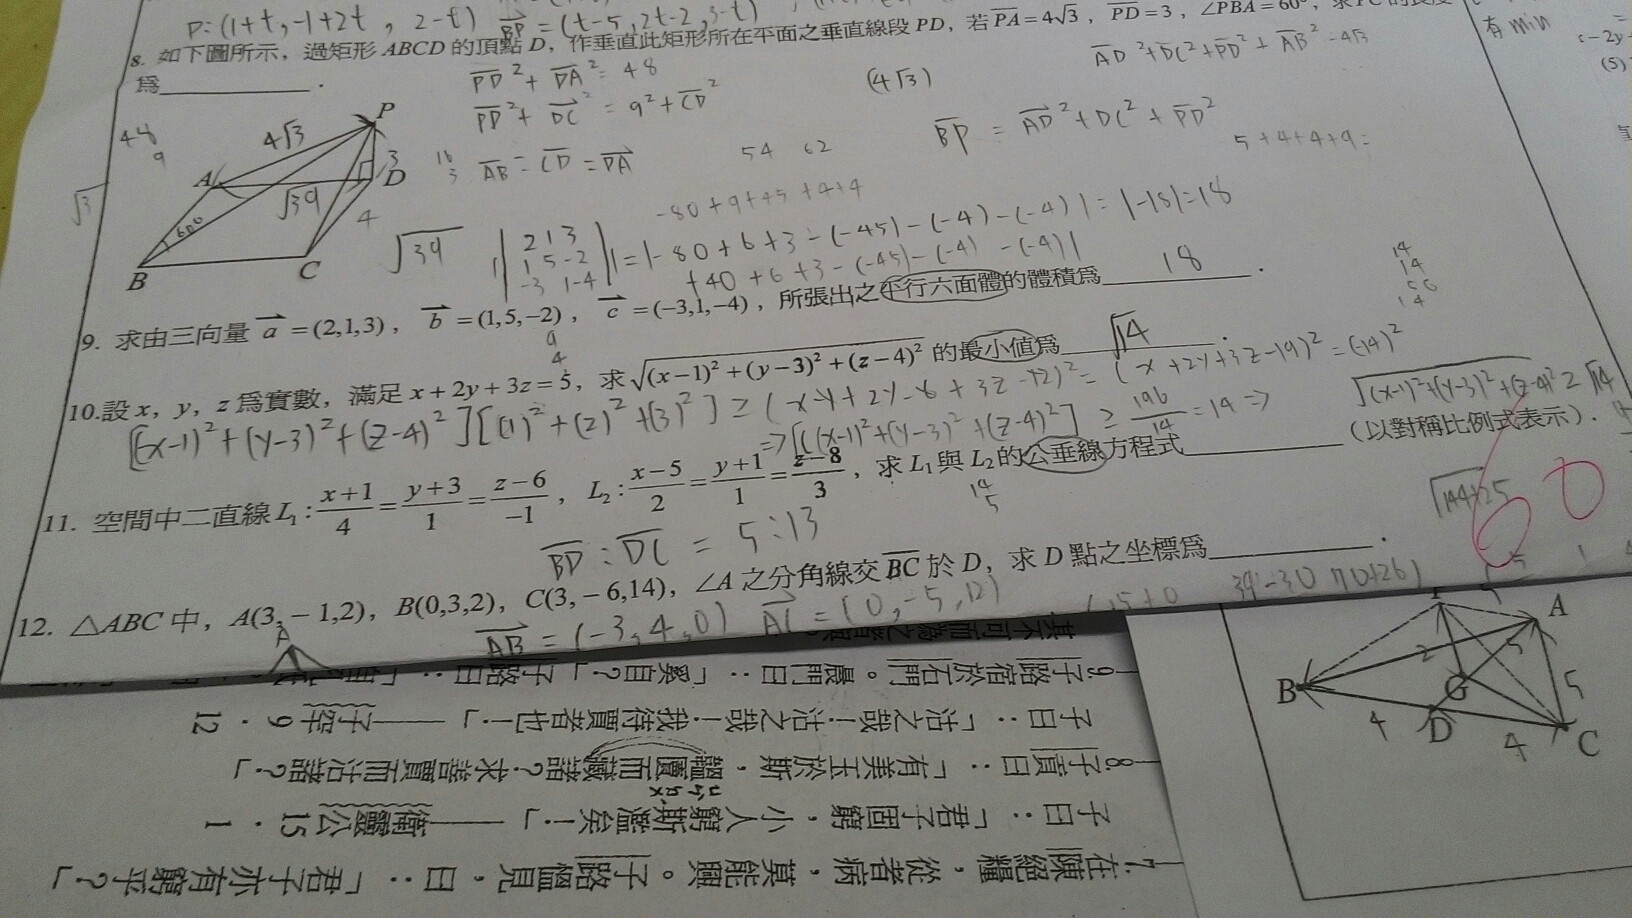 P:(1+t,-1+2t, 2-t) BP=(t-5,2t-2,3-t)
8. 如下圖所示，過矩形ABCD的頂點D，作垂直此矩形所在平面之垂直線段PD，若PA=4√3，PD=3，∠PBA=60°，求PC的長度
為__________.
PD²+DA²=48
PD²+DC²=9²+CD²
(4√3)
AD²+DC²+PD²+AB²
BP = AD²+DC²+PD²
5+4+4+9=
48
9
4√3
P
3
A
D
√39
4
60°
B
C
√3
AB=CD=DA
54 62
√39
-80+9+45+4+4
|2 1 3|
|1 5 -2|
|-3 1 -4|
=|-80+6+3-(-45)-(-4)-(-4)|=|-18|=18
+40+6+3-(-45)-(-4)-(-4)|
9. 求由三向量 a=(2,1,3)，b=(1,5,-2)，c=(-3,1,-4)，所張出之平行六面體的體積為 18 .
10.設x，y，z為實數，滿足x+2y+3z=5，求√(x-1)²+(y-3)²+(z-4)² 的最小值為 √14 .
[(x-1)²+(y-3)²+(z-4)²][(1)²+(2)²+(3)²] ≥ (x-1+2y-6+3z-12)²=(x+2y+3z-19)²=(14)²
⇒[(x-1)²+(y-3)²+(z-4)²] ≥ 196/14=14 ⇒ √(x-1)²+(y-3)²+(z-4)² ≥ √14
11. 空間中二直線L₁: (x+1)/4=(y+3)/1=(z-6)/-1，L₂: (x-5)/2=(y+1)/1=(z-8)/3，求L₁與L₂的公垂線方程式__________（以對稱比例式表示）.
BD:DC=5:13
√144+25
12. △ABC中，A(3,-1,2)，B(0,3,2)，C(3,-6,14)，∠A之分角線交BC於D，求D點之坐標為__________.
AB=(-3,4,0) AC=(0,-5,12)
有min
60
A
B
G
D
C
2
5
4
4
9.子路宿於石門。晨門曰：「奚自？」子路曰：
子曰：「沽之哉！沽之哉！我待賈者也！」——子罕9．12
8.子貢曰：「有美玉於斯，韞匵而藏諸？求善賈而沽諸？」
子曰：「君子固窮，小人窮斯濫矣！」——衛靈公15．1
7.在陳絕糧，從者病，莫能興。子路慍見，曰：「君子亦有窮乎？」